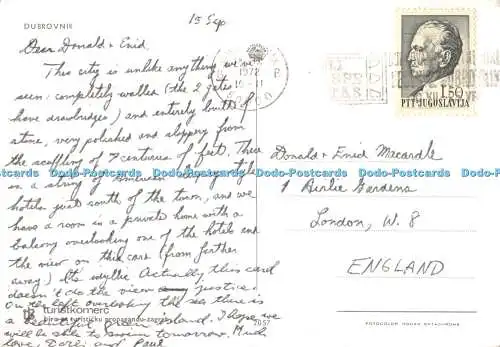 DUBROVNIK
15 Sep
Dear Donald + Enid
This city is unlike anything we've
seen: completely walled (the 2 gates
have drawbridges) and entirely built of
stone, very polished and slippery from
the scuffling of 7 centuries of feet. There
is a string of American luxury type
hotels just south of the town, and we
have a room in a private home with a
balcony overlooking one of the hotels and
the view on this card (from farther
away) Its idyllic Actually this card
doesn't do the view any justice.
On the left overlooking the sea there is
a beautiful green island. I hope we
will be able to swim tomorrow. Much
love, Dorli and Paul
1972
1.50
PTT JUGOSLAVIJA
Donald + Enid Macardle
1 Airlie Gardens
London, W. 8
ENGLAND
turistkomerc
biro za turističku propagandu-zagreb
2057
Dodo-Postcards Dodo-Postcards Dodo-Postcards Dodo-Postcards Dodo-Postcards